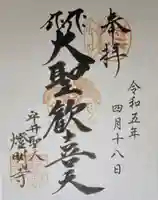 奉拝
令和五年
四月十八日
大聖歡喜天
平井聖天
燈明寺